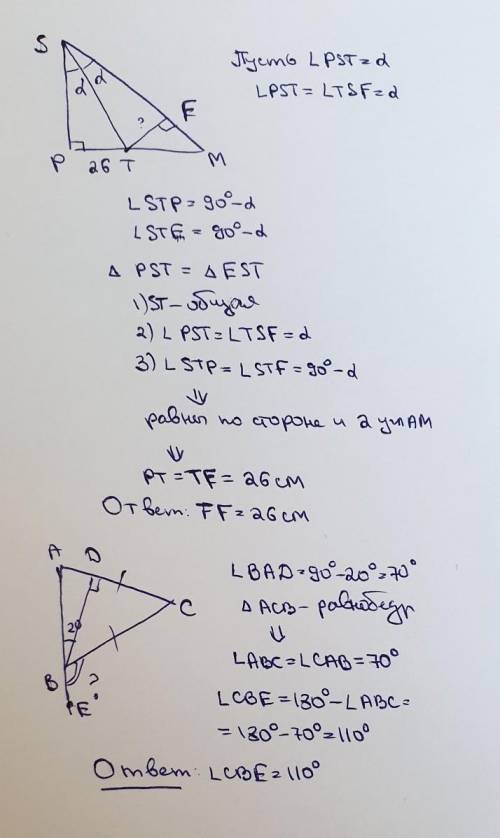 S
α α
?
F
P 26 T M
Пусть ∠PST=α
∠PST=∠TSF=α
∠STP=90°-α
∠STF=90°-α
△ PST = △ FST
1) ST - общая
2) ∠ PST=∠TSF=α
3) ∠STP=∠STF=90°-α
⇓
равны по стороне и 2 углАМ
⇓
PT=TF=26 см
Ответ: FF=26 см
A D
C
20
B ?
E
∠BAD=90°-20°=70°
△ ACB - равнобедр
⇓
∠ABC=∠CAB=70°
∠CBE=180°-∠ABC=
=180°-70°=110°
Ответ: ∠CBE=110°